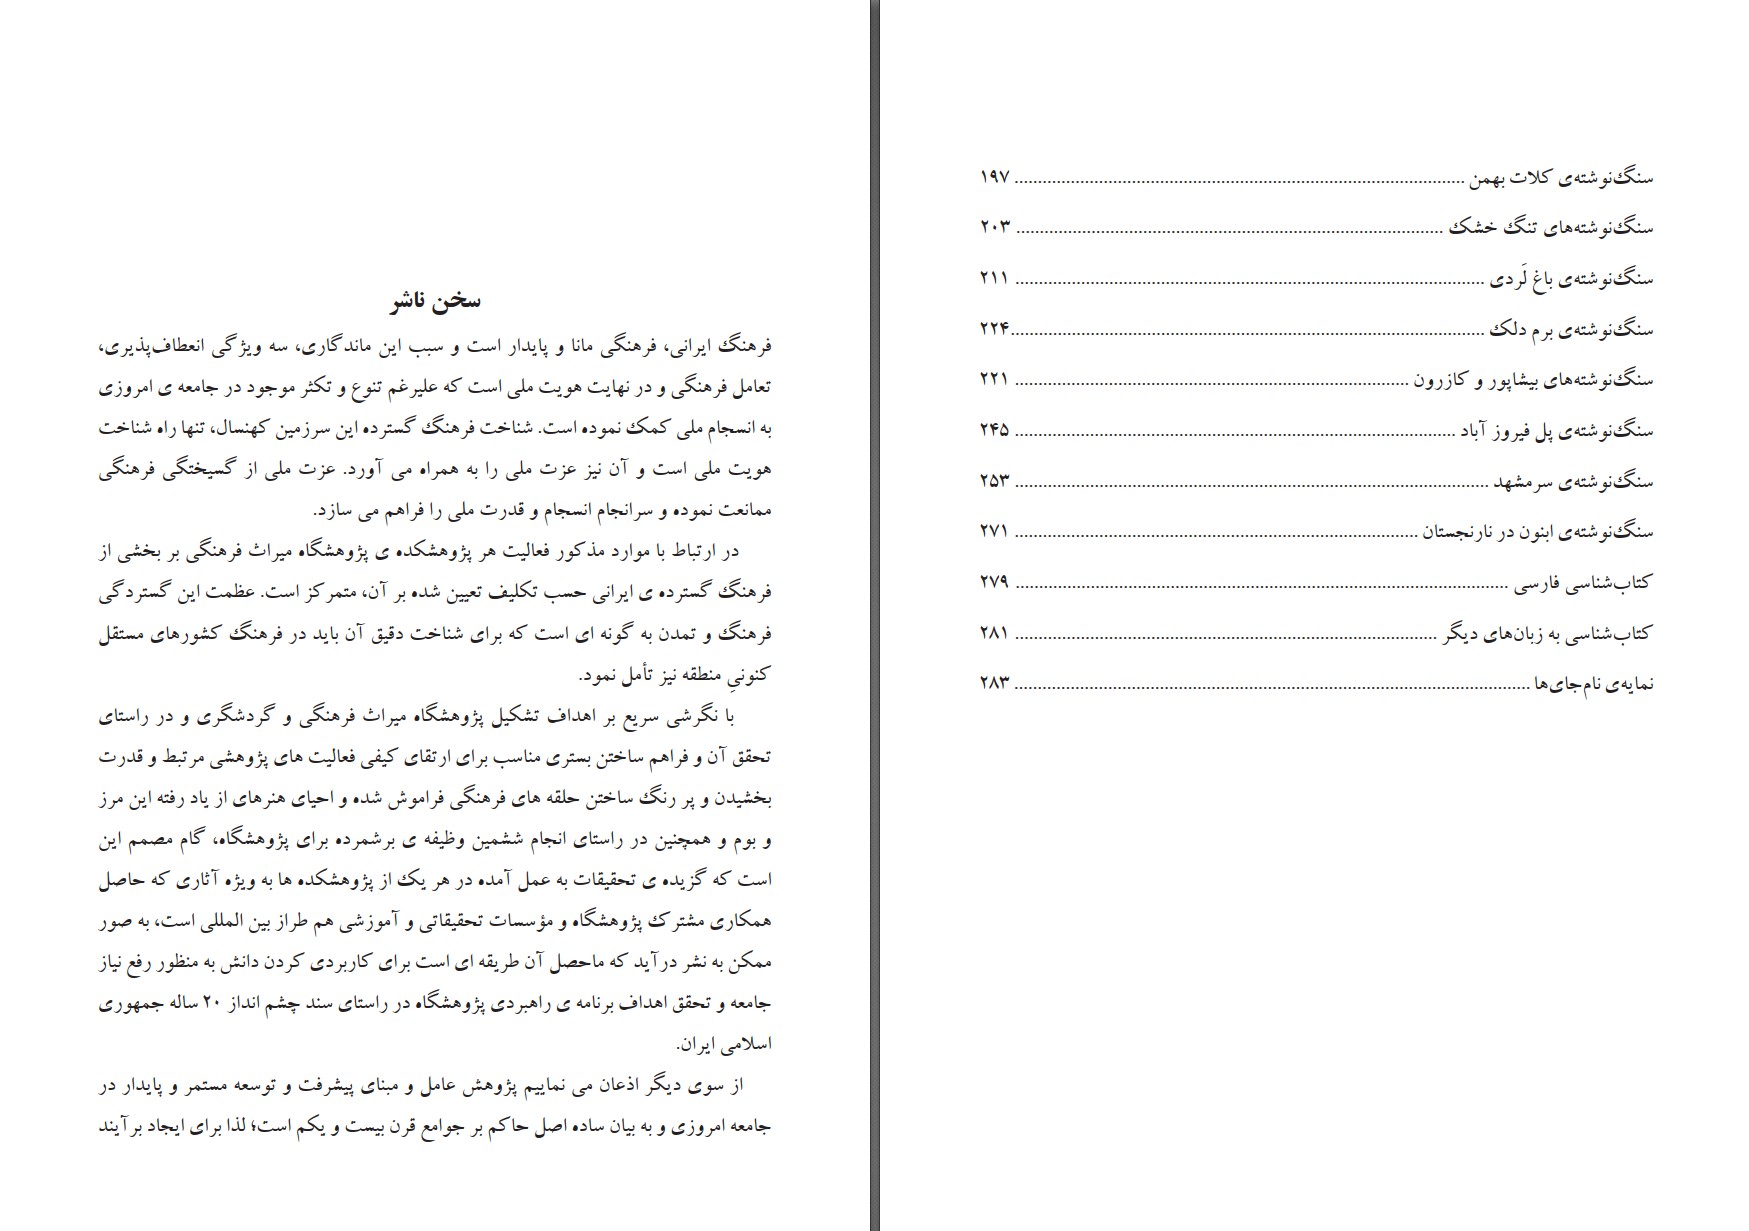 سنگ‌نوشته‌ی کلات بهمن ................................................................................................ ۱۹۷
سنگ‌نوشته‌های تنگ خشک ........................................................................................... ۲۰۳
سنگ‌نوشته‌ی باغ لَردی .................................................................................................... ۲۱۱
سنگ‌نوشته‌ی برم دلک .................................................................................................... ۲۲۴
سنگ‌نوشته‌های بیشاپور و کازرون .................................................................................... ۲۲۱
سنگ‌نوشته‌ی پل فیروز آباد .............................................................................................. ۲۴۵
سنگ‌نوشته‌ی سرمشهد ..................................................................................................... ۲۵۳
سنگ‌نوشته‌ی ابنون در نارنجستان ...................................................................................... ۲۷۱
کتاب‌شناسی فارسی ......................................................................................................... ۲۷۹
کتاب‌شناسی به زبان‌های دیگر .......................................................................................... ۲۸۱
نمایه‌ی نام‌جای‌ها .............................................................................................................. ۲۸۳
سخن ناشر
فرهنگ ایرانی، فرهنگی مانا و پایدار است و سبب این ماندگاری، سه ویژگی انعطاف‌پذیری،
تعامل فرهنگی و در نهایت هویت ملی است که علیرغم تنوع و تکثر موجود در جامعه ی امروزی
به انسجام ملی کمک نموده است. شناخت فرهنگ گسترده این سرزمین کهنسال، تنها راه شناخت
هویت ملی است و آن نیز عزت ملی را به همراه می آورد. عزت ملی از گسیختگی فرهنگی
ممانعت نموده و سرانجام انسجام و قدرت ملی را فراهم می سازد.
در ارتباط با موارد مذکور فعالیت هر پژوهشکده ی پژوهشگاه میراث فرهنگی بر بخشی از
فرهنگ گسترده ی ایرانی حسب تکلیف تعیین شده بر آن، متمرکز است. عظمت این گستردگی
فرهنگ و تمدن به گونه ای است که برای شناخت دقیق آن باید در فرهنگ کشورهای مستقل
کنونیِ منطقه نیز تأمل نمود.
با نگرشی سریع بر اهداف تشکیل پژوهشگاه میراث فرهنگی و گردشگری و در راستای
تحقق آن و فراهم ساختن بستری مناسب برای ارتقای کیفی فعالیت های پژوهشی مرتبط و قدرت
بخشیدن و پر رنگ ساختن حلقه های فرهنگی فراموش شده و احیای هنرهای از یاد رفته این مرز
و بوم و همچنین در راستای انجام ششمین وظیفه ی برشمرده برای پژوهشگاه، گام مصمم این
است که گزیده ی تحقیقات به عمل آمده در هر یک از پژوهشکده ها به ویژه آثاری که حاصل
همکاری مشترک پژوهشگاه و مؤسسات تحقیقاتی و آموزشی هم طراز بین المللی است، به صور
ممکن به نشر درآید که ماحصل آن طریقه ای است برای کاربردی کردن دانش به منظور رفع نیاز
جامعه و تحقق اهداف برنامه ی راهبردی پژوهشگاه در راستای سند چشم انداز ۲۰ ساله جمهوری
اسلامی ایران.
از سوی دیگر اذعان می نماییم پژوهش عامل و مبنای پیشرفت و توسعه مستمر و پایدار در
جامعه امروزی و به بیان ساده اصل حاکم بر جوامع قرن بیست و یکم است؛ لذا برای ایجاد برآیند